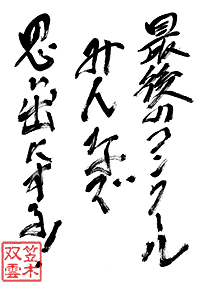 最後のコンクール
みんなで
思い出にする!
笠木
双雲